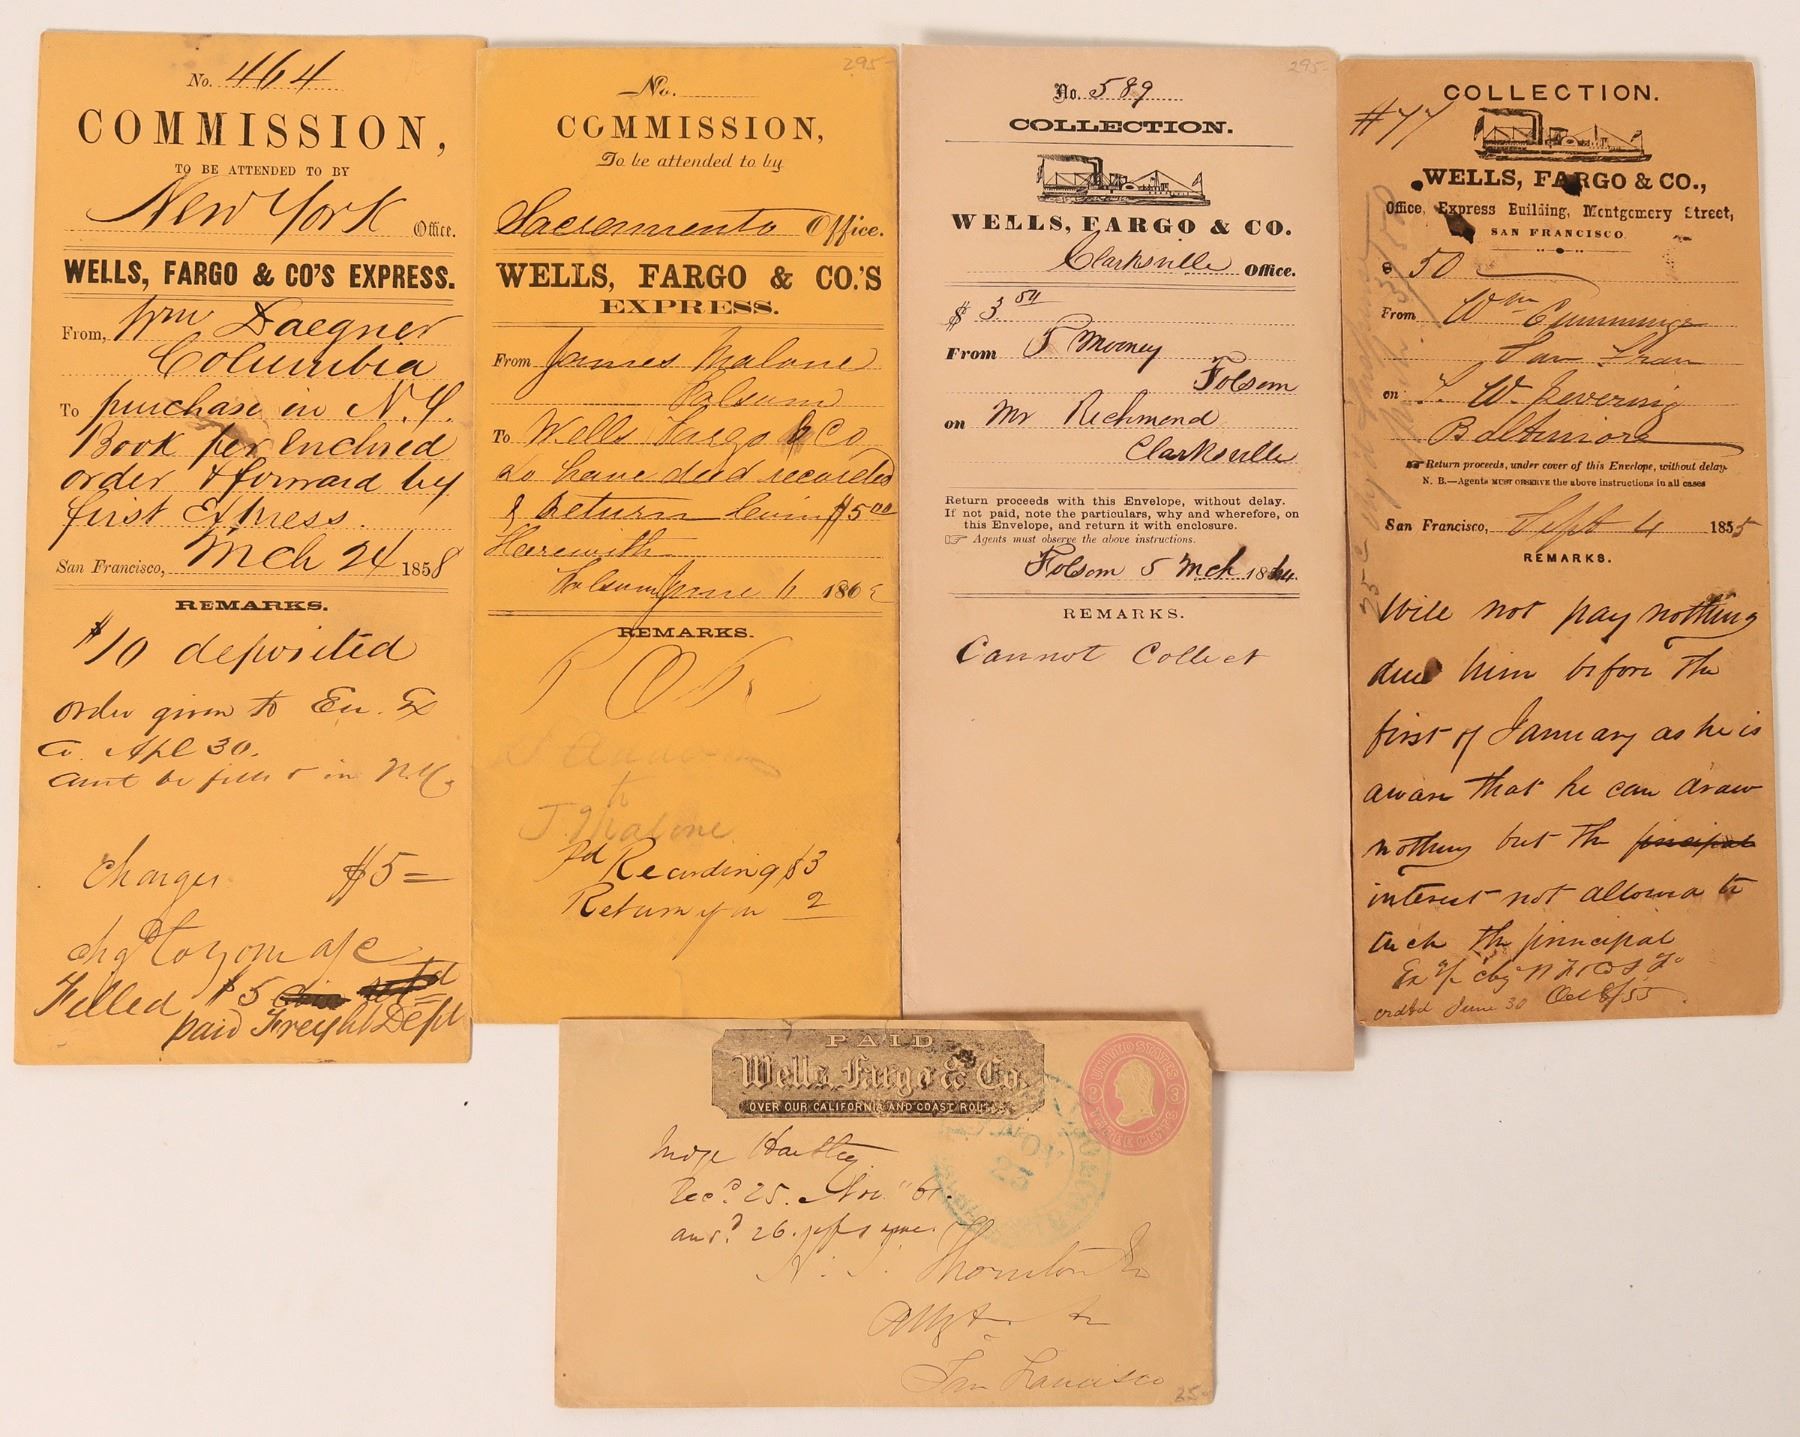 No. 464
COMMISSION,
TO BE ATTENDED TO BY
New York Office.
WELLS, FARGO & CO'S EXPRESS.
From, Wm Daegner
Columbia
To purchase in N.Y.
Book per Enclosed
order & forward by
first Express.
San Francisco, Mch 24 1858
REMARKS.
$10 deposited
order given to Eu. Ex
Co. Apl 30.
cant be filled in N.Y.
Charges $5=
chgd to your a/c
Filled $5
paid Freight Dept
295-
No.
COMMISSION,
To be attended to by
Sacramento Office.
WELLS, FARGO & CO.'S
EXPRESS.
From James Malone
Folsum
To Wells Fargo & Co
to have deed recorded
& Return Coin $5 00
Herewith
Folsum June 6 186
REMARKS.
to
J. Malone
Pd Recording $3
Return 2
295-
No. 589
COLLECTION.
WELLS, FARGO & CO.
Clarksville Office.
$ 3 54
From T Mooney
Folsom
on Mr Richmond
Clarksville
Return proceeds with this Envelope, without delay.
If not paid, note the particulars, why and wherefore, on
this Envelope, and return it with enclosure.
Agents must observe the above instructions.
Folsom 5 Mch 1864.
REMARKS.
Cannot Collect
#77
COLLECTION.
WELLS, FARGO & CO.,
Office, Express Building, Montgomery Street,
SAN FRANCISCO
$ 50
From Wm Cummings
San Fran
on T. W. Levering
Baltimore
Return proceeds, under cover of this Envelope, without delay.
N. B.—Agents MUST OBSERVE the above instructions in all cases
San Francisco, Sept 4 1855
REMARKS.
Will not pay nothing
due him before the
first of January as he is
aware that he can draw
nothing but the principal
interest not allowed to
tuch the principal
Oct 8/55
June 30
25c
PAID
Wells, Fargo & Co.
OVER OUR CALIFORNIA AND COAST ROUTES
UNITED STATES
3 3
THREE CENTS
NOV
25
Judge Hartley
Rec.d 25. Nov. "61.
ans.d 26.
H. I. Thornton Jr
Atty
San Francisco
25-